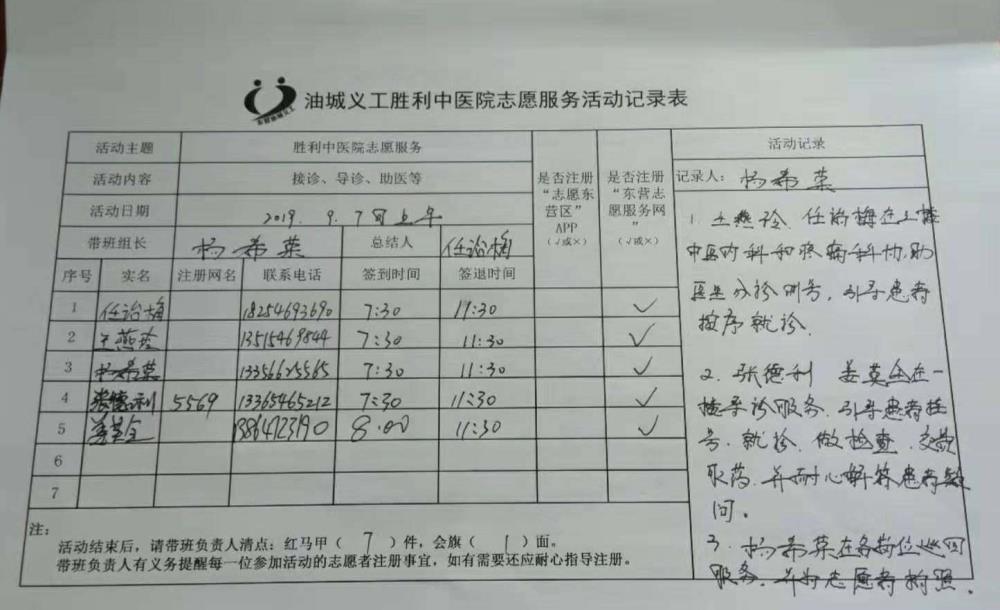 油城义工胜利中医院志愿服务活动记录表
活动主题 胜利中医院志愿服务
活动内容 接诊、导诊、助医等
活动日期 2019.9.7日上午
带班组长 杨希荣 总结人 任治梅
是否注册“志愿东营区”APP（√或×）
是否注册“东营志愿服务网”（√或×）
序号 实名 注册网名 联系电话 签到时间 签退时间
1 任治梅 18254693690 7:30 11:30 ✓
2 王燕玲 13515469844 7:30 11:30 ✓
3 杨希荣 13356625565 7:30 11:30 ✓
4 张德利 5569 13365465212 7:30 11:30 ✓
5 姜英全 13864723190 8:00 11:30 ✓
6
7
注：
活动结束后，请带班负责人清点：红马甲（ 7 ）件，会旗（ 1 ）面。
带班负责人有义务提醒每一位参加活动的志愿者注册事宜，如有需要还应耐心指导注册。
活动记录
记录人：杨希荣
1.王燕玲、任治梅在二楼
中医内科和疼痛科协助
医生分诊叫号，引导患者
按序就诊.
2.张德利 姜英全在一
楼导诊服务.引导患者挂
号.就诊.做检查.交款
取药.并耐心解答患者疑
问。
3.杨希荣在各岗位巡回
服务.并为志愿者拍照.